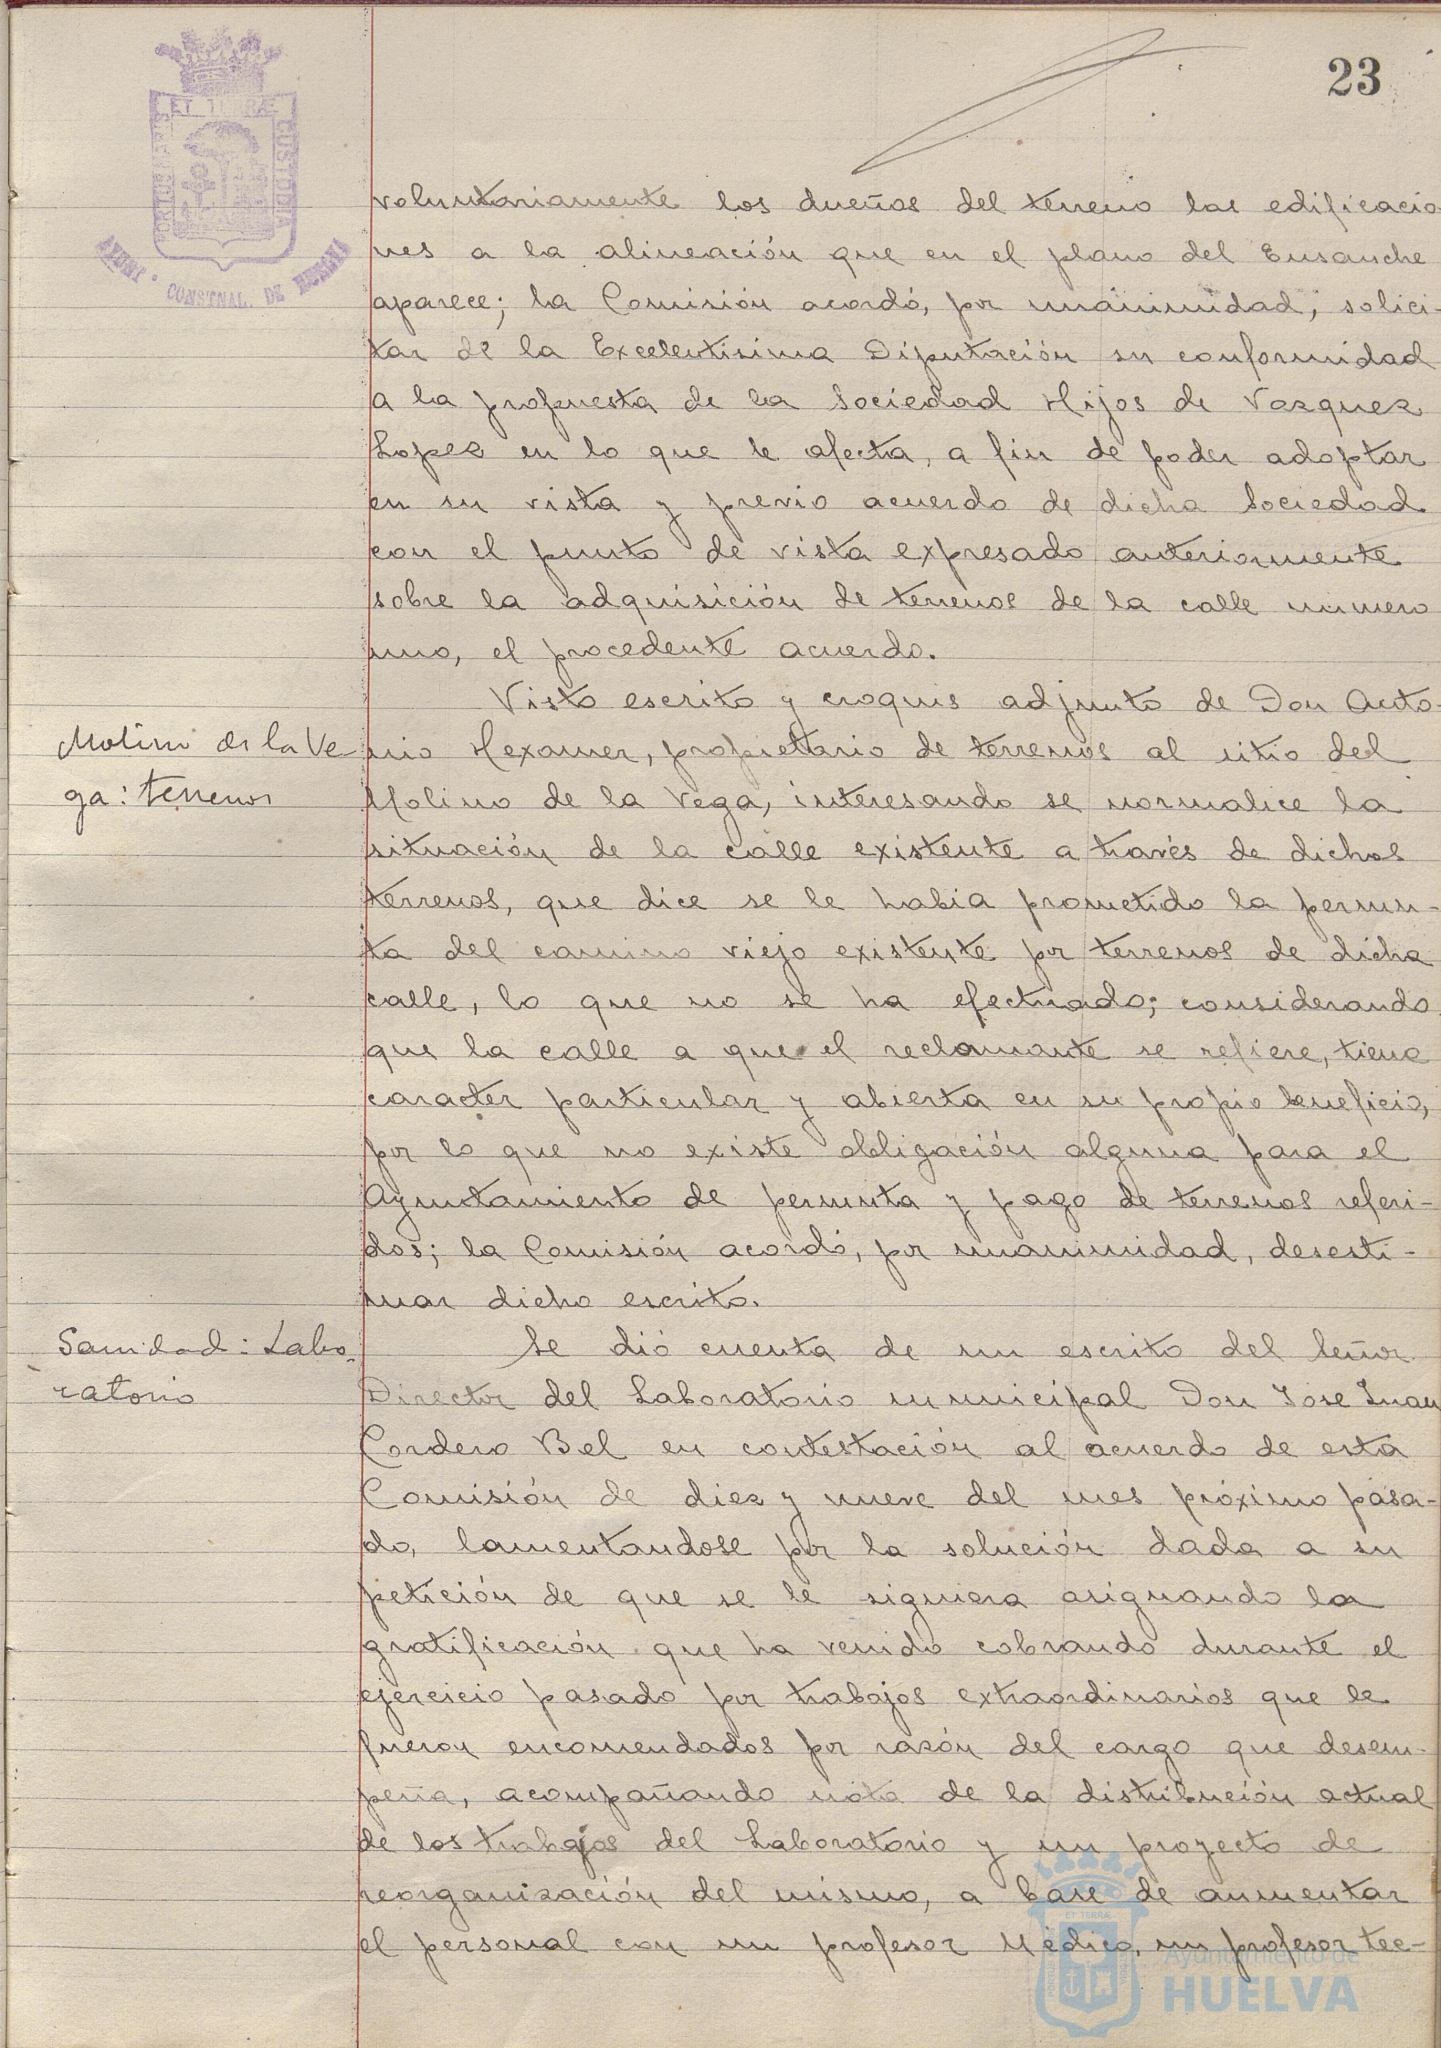 23
PORTUS MARIS ET TERRÆ CUSTODIA
AYUNT. CONSTNAL. DE HUELVA
voluntariamente los dueños del terreno las edificacio
nes a la alineación que en el plano del Ensanche
aparece; la Comisión acordó, por unanimidad, solici-
tar de la Excelentisima Diputación su conformidad
a la propuesta de la Sociedad Hijos de Vazquez
Lopez en lo que le afecta, a fin de poder adoptar
en su vista y previo acuerdo de dicha Sociedad
con el punto de vista expresado anteriormente
sobre la adquisición de terrenos de la calle numero
uno, el procedente acuerdo.
Visto escrito y croquis adjunto de Don Anto-
Molino de la Ve
nio Hexamer, propietario de terrenos al sitio del
ga: terrenos
Molino de la Vega, interesando se normalice la
situación de la calle existente a través de dichos
terrenos, que dice se le habia prometido la permu-
ta del camino viejo existente por terrenos de dicha
calle, lo que no se ha efectuado; considerando
que la calle a que el reclamante se refiere, tiene
caracter particular y abierta en su propio beneficio,
por lo que no existe obligación alguna para el
Ayuntamiento de permuta y pago de terrenos referi-
dos; la Comisión acordó, por unanimidad, desesti-
mar dicho escrito.
Sanidad: Labo-
Se dió cuenta de un escrito del Señor
ratorio
Director del Laboratorio municipal Don Jose Juan
Cordero Bel en contestación al acuerdo de esta
Comisión de diez y nueve del mes próximo pasa-
do, lamentandose por la solución dada a su
petición de que se le siguiera asignando la
gratificación que ha venido cobrando durante el
ejercicio pasado por trabajos extraordinarios que le
fueron encomendados por razón del cargo que desem-
peña, acompañando nota de la distribución actual
de los trabajos del Laboratorio y un proyecto de
reorganización del mismo, a base de aumentar
el personal con un profesor Médico, un profesor tec-
Ayuntamiento de
HUELVA